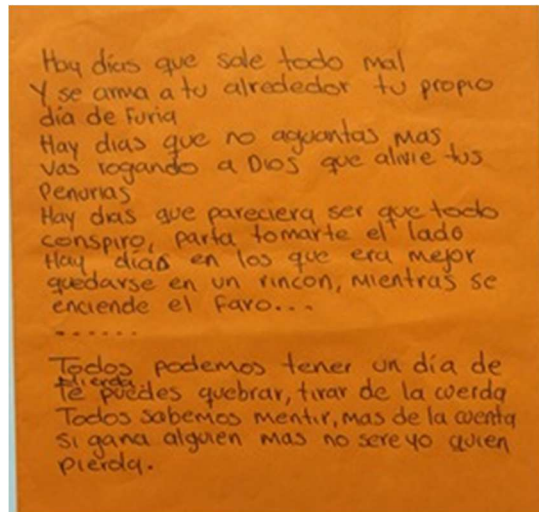 Hay días que sale todo mal
Y se arma a tu alrededor tu propio
día de Furia
Hay dias que no aguantas mas
vas rogando a Dios que alivie tus
Penurias
Hay dias que pareciera ser que todo
conspiro, parta tomarte el lado
Hay días en los que era mejor
quedarse en un rincon, mientras se
enciende el Faro...
......
Todos podemos tener un día de
Mierda
te puedes quebrar, tirar de la cuerda
Todos sabemos mentir, mas de la cuenta
Si gana alguien mas no sere yo quien
pierda.